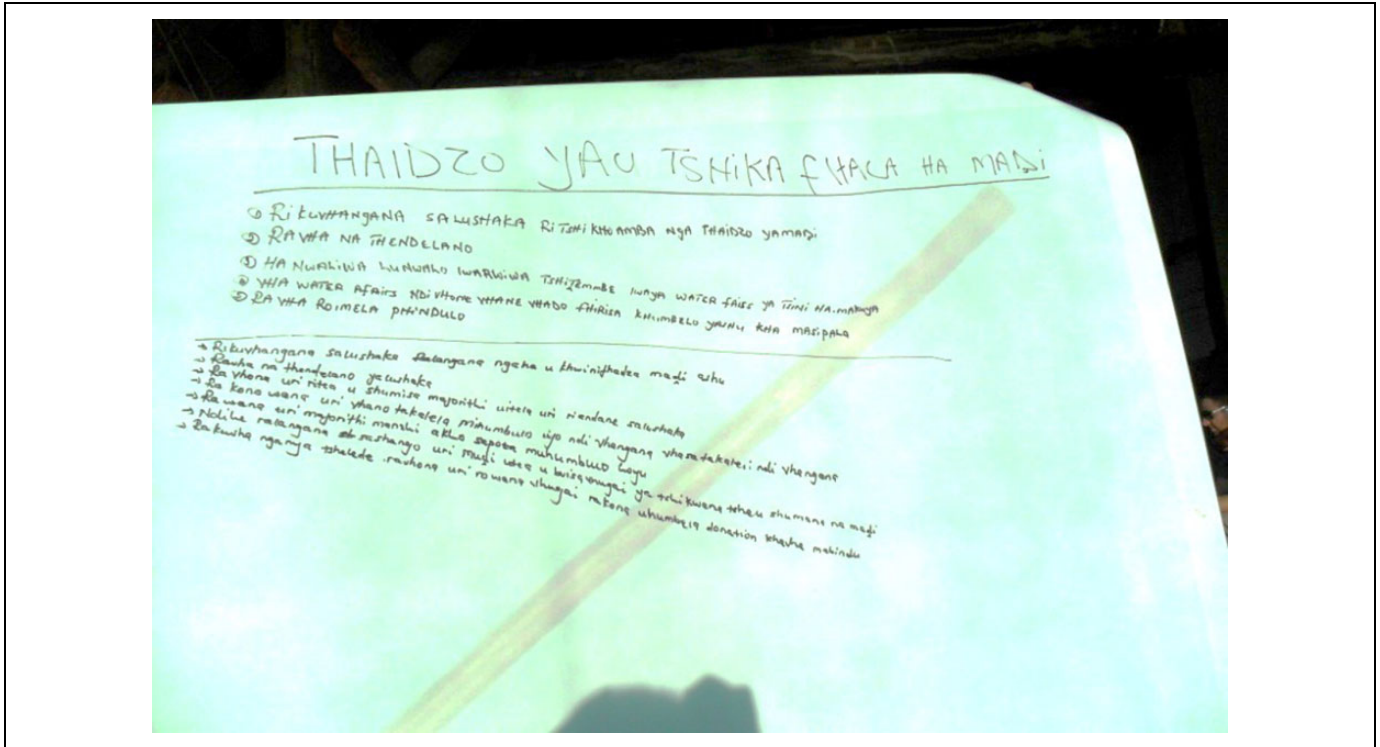 THAIDZO YAU TSHIKAFHALA HA MADI
① RIKUVHANGANA SALUSHAKA RITSHIKHOAMBA NGA THAIDZO YAMADI
② RAVHA NA THENDELANO
③ HA NWALIWA LUNWALO LWARWIWA TSHIZEMMBE LWAYA WATER FAISS YA TSINI HA.MAKUYA
④ VHA WATER AFAIRS NDI VHONE VHANE VHADO FHIRISA KHUMBELO YAVHU KHA MASIPALA
⑤ RA VHA ROIMELA PHINDULO
→ Rikuvhangana salushaka Ralangana ngaha u khwinifhadza madi ashu
→ Ravha na thendelano yalushaka
→ Ra vhona uri ritea u shumisa majorithi uitela uri riendane salushaka
→ Ra kona wana uri vhano takalela mihumbulo iyo ndi vhangana vhasatakaleli ndi vhangana
→ Ra wana uri majorithi manzhi akho sapota muhumbulo hoyu
→ Ndilhe ralangana sashango uri mudi utea u bvisa vhugai ya tshikwama tshau shumana na madi
→ Rakusha nganya tshelede .ravhona uri ro wana vhugai rakona uhumbela donation khavha mabindu